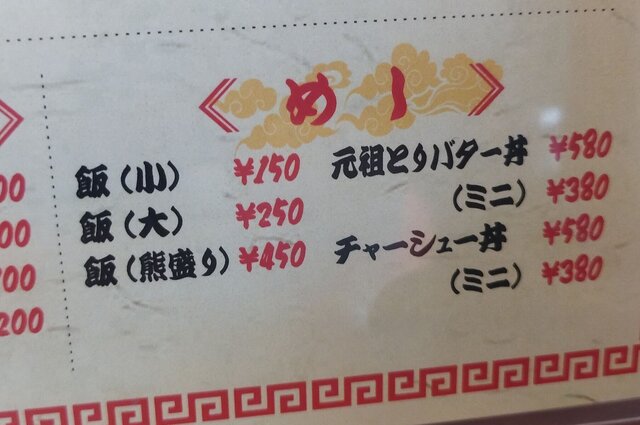 めし
飯(小) ¥150
飯(大) ¥250
飯(熊盛り) ¥450
元祖とりバター丼 ¥580
(ミニ) ¥380
チャーシュー丼 ¥580
(ミニ) ¥380
00
00
700
200